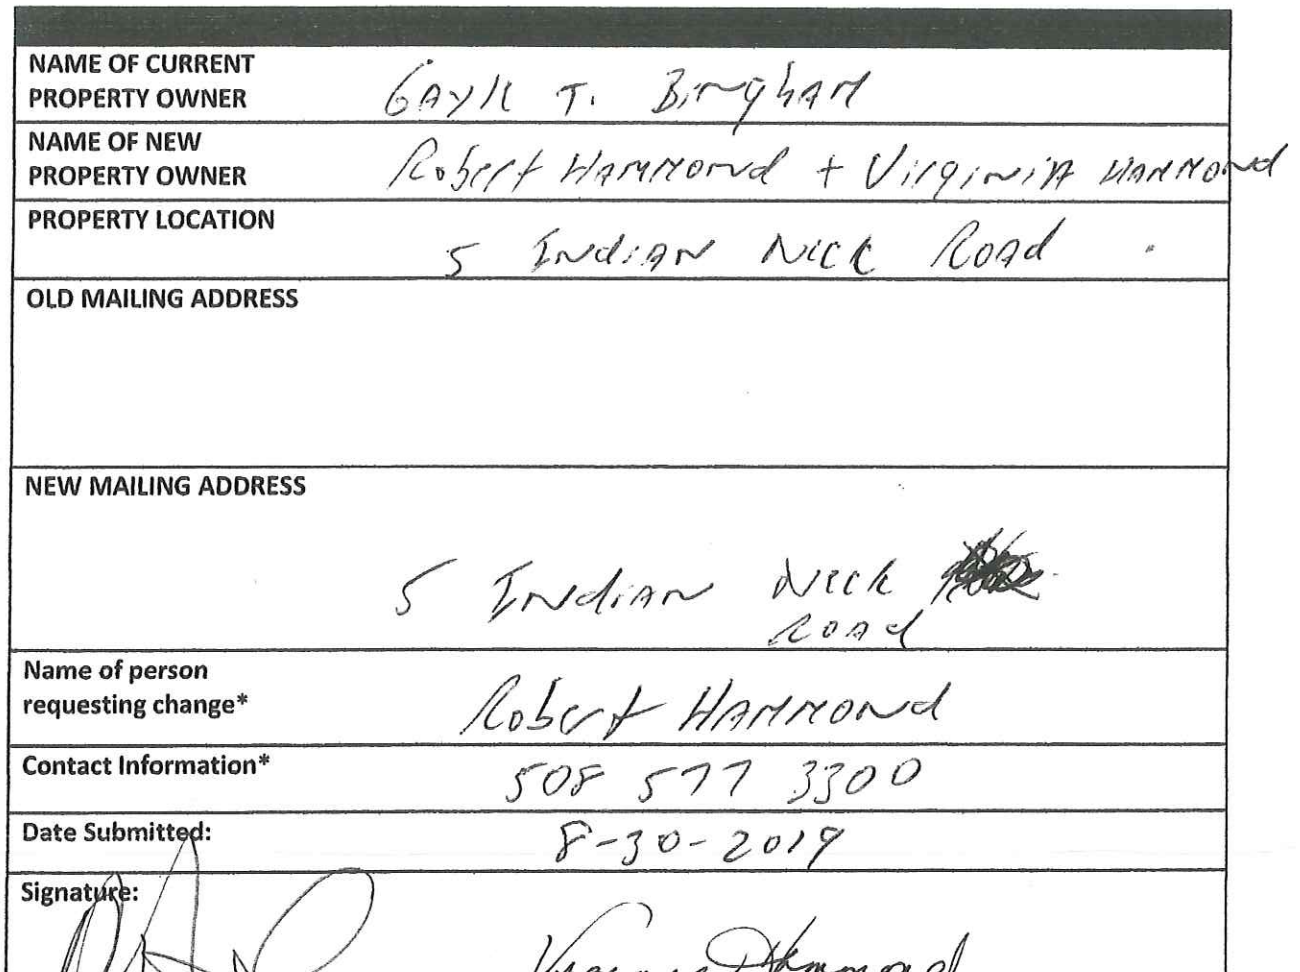 NAME OF CURRENT
PROPERTY OWNER Gayle T. Bingham
NAME OF NEW
PROPERTY OWNER Robert Hammond + Virginia Hammond
PROPERTY LOCATION
5 Indian Neck Road
OLD MAILING ADDRESS
NEW MAILING ADDRESS
5 Indian Neck
Road
Name of person
requesting change* Robert Hammond
Contact Information* 508 577 3300
Date Submitted: 8-30-2019
Signature:
Hammond